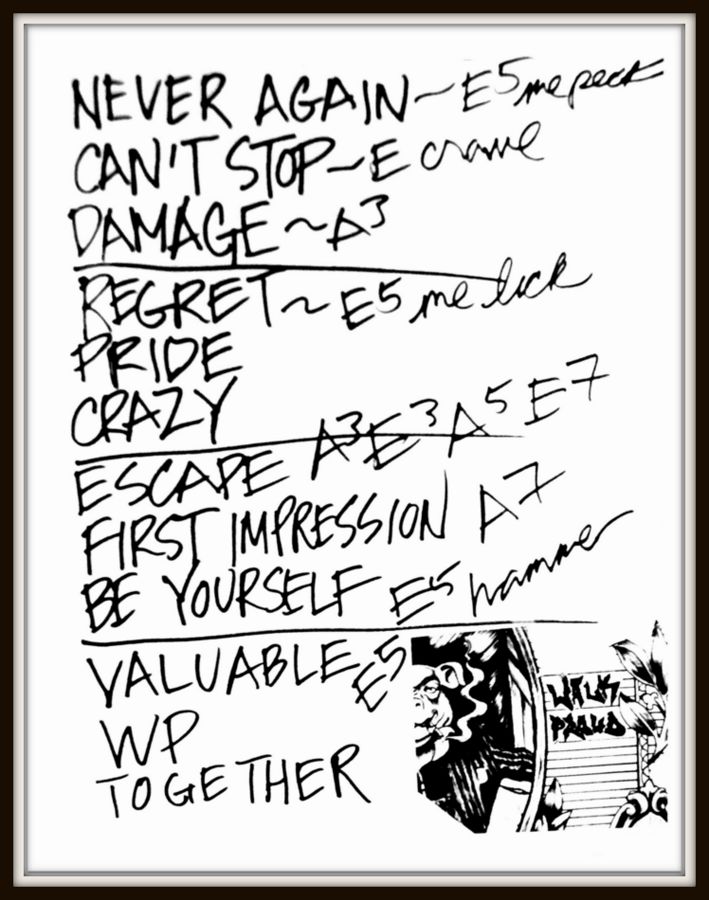 NEVER AGAIN ~ E5 me peck
CAN'T STOP ~ E crawl
DAMAGE ~ A3
REGRET ~ E5 me lick
PRIDE
CRAZY
ESCAPE A3 E3 A5 E7
FIRST IMPRESSION A7
BE YOURSELF E5 hammer
VALUABLE E5
WP
TOGETHER
WALK
PROUD